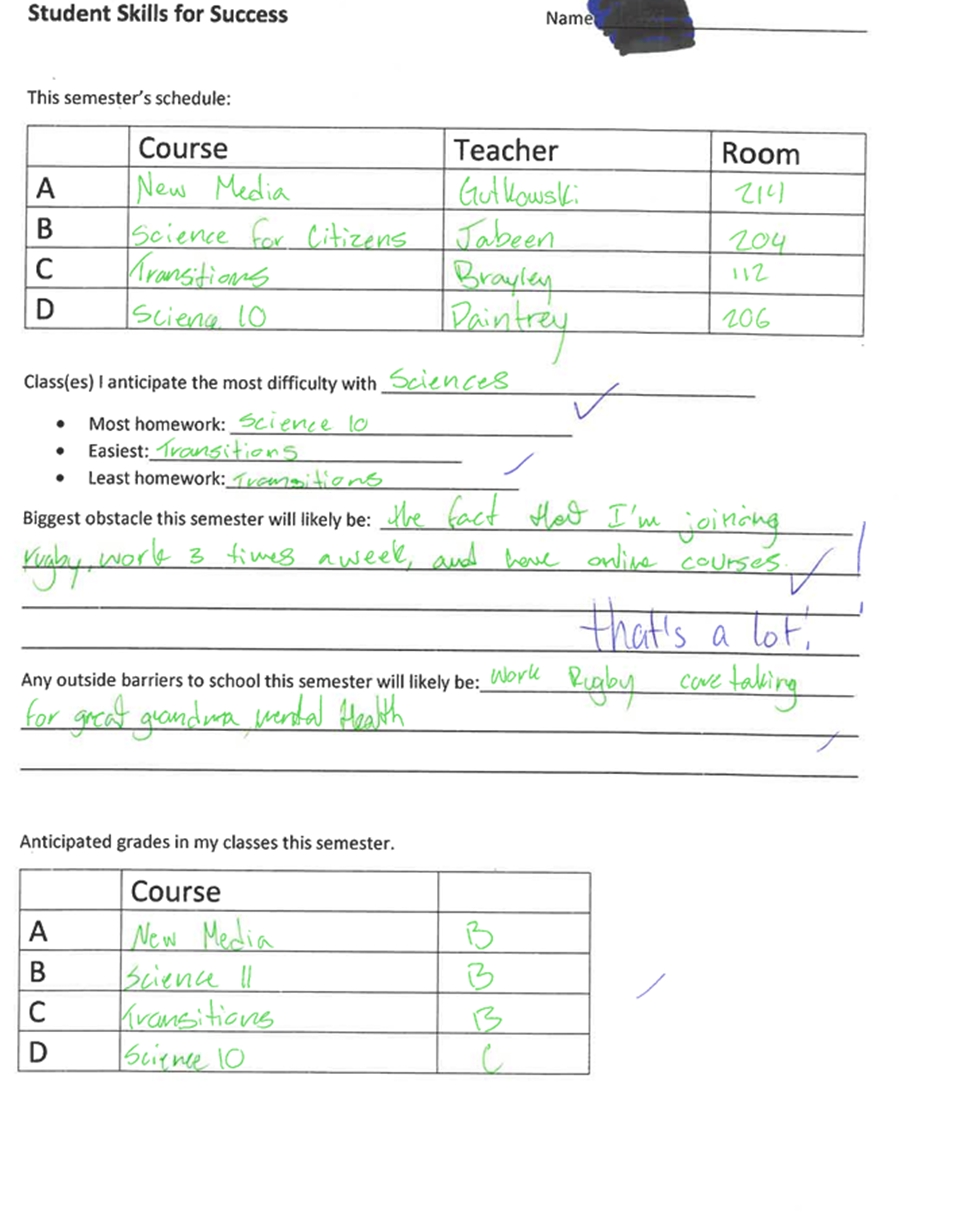 Student Skills for Success Name
This semester's schedule:
Course Teacher Room
A New Media Gutkowski 214
B Science for Citizens Jabeen 204
C Transitions Brayley 112
D Scienc 10 Daintrey 206
Class(es) I anticipate the most difficulty with Sciences
• Most homework: Science 10
• Easiest: Transitions
• Least homework: Transitions
Biggest obstacle this semester will likely be: the fact that I'm joining
rugby, work 3 times a week, and have online courses.
that's a lot!
Any outside barriers to school this semester will likely be: Work Rugby care taking
for great grandma, mental Health
Anticipated grades in my classes this semester.
Course
A New Media B
B Science 11 B
C Transitions B
D Science 10 C